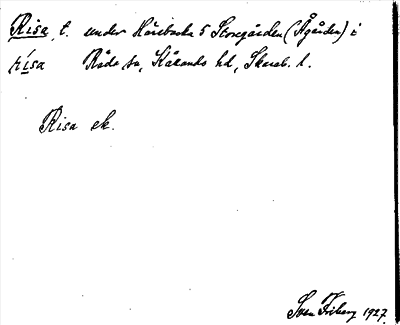 Risa, t. under Håsebacka 5 Storegården (Ågården) i
rísa Råda sn, Kållands hd, Skarab. l.
Risa ek.
Sven Friberg 1927.